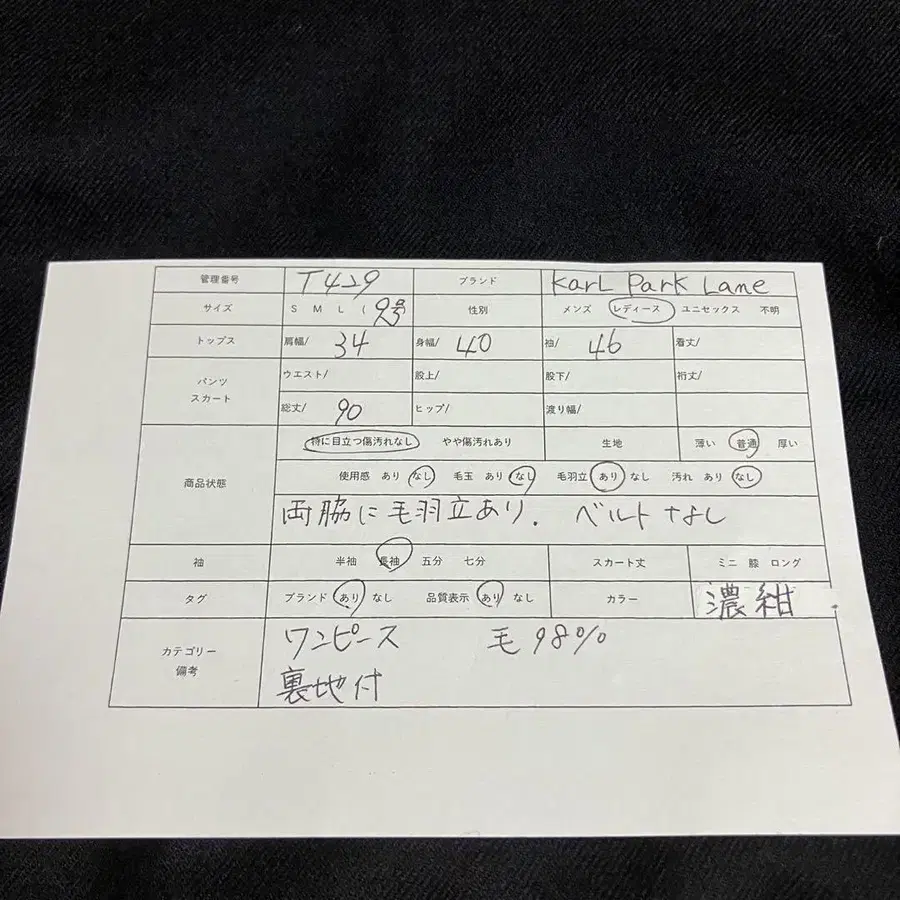 管理番号 T429 ブランド KarL Park Lane
サイズ S M L ( 9号 性別 メンズ レディース ユニセックス 不明
トップス 肩幅/ 34 身幅/ 40 袖/ 46 着丈/
パンツ スカート ウエスト/ 股上/ 股下/ 裄丈/
総丈/ 90 ヒップ/ 渡り幅/
商品状態 特に目立つ傷汚れなし やや傷汚れあり 生地 薄い 普通 厚い
使用感 あり なし 毛玉 あり なし 毛羽立 あり なし 汚れ あり なし
両脇に毛羽立あり. ベルトなし
袖 半袖 長袖 五分 七分 スカート丈 ミニ 膝 ロング
タグ ブランド あり なし 品質表示 あり なし カラー 濃紺
カテゴリー 備考 ワンピース 毛98%
裏地付